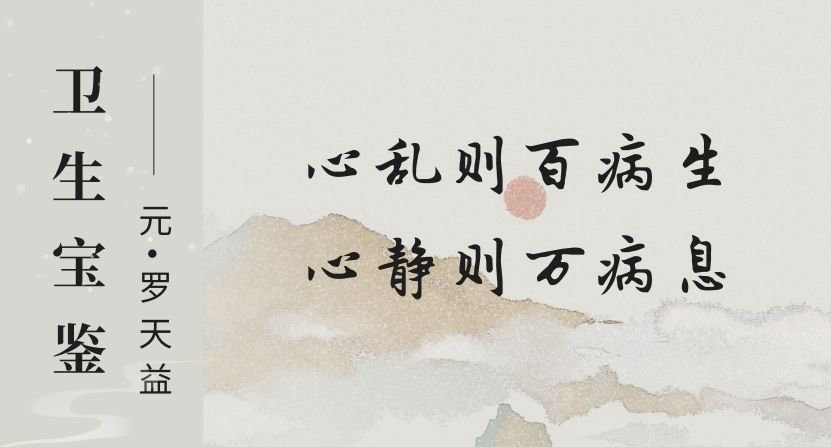 卫生宝鉴
——元·罗天益
心乱则百病生
心静则万病息